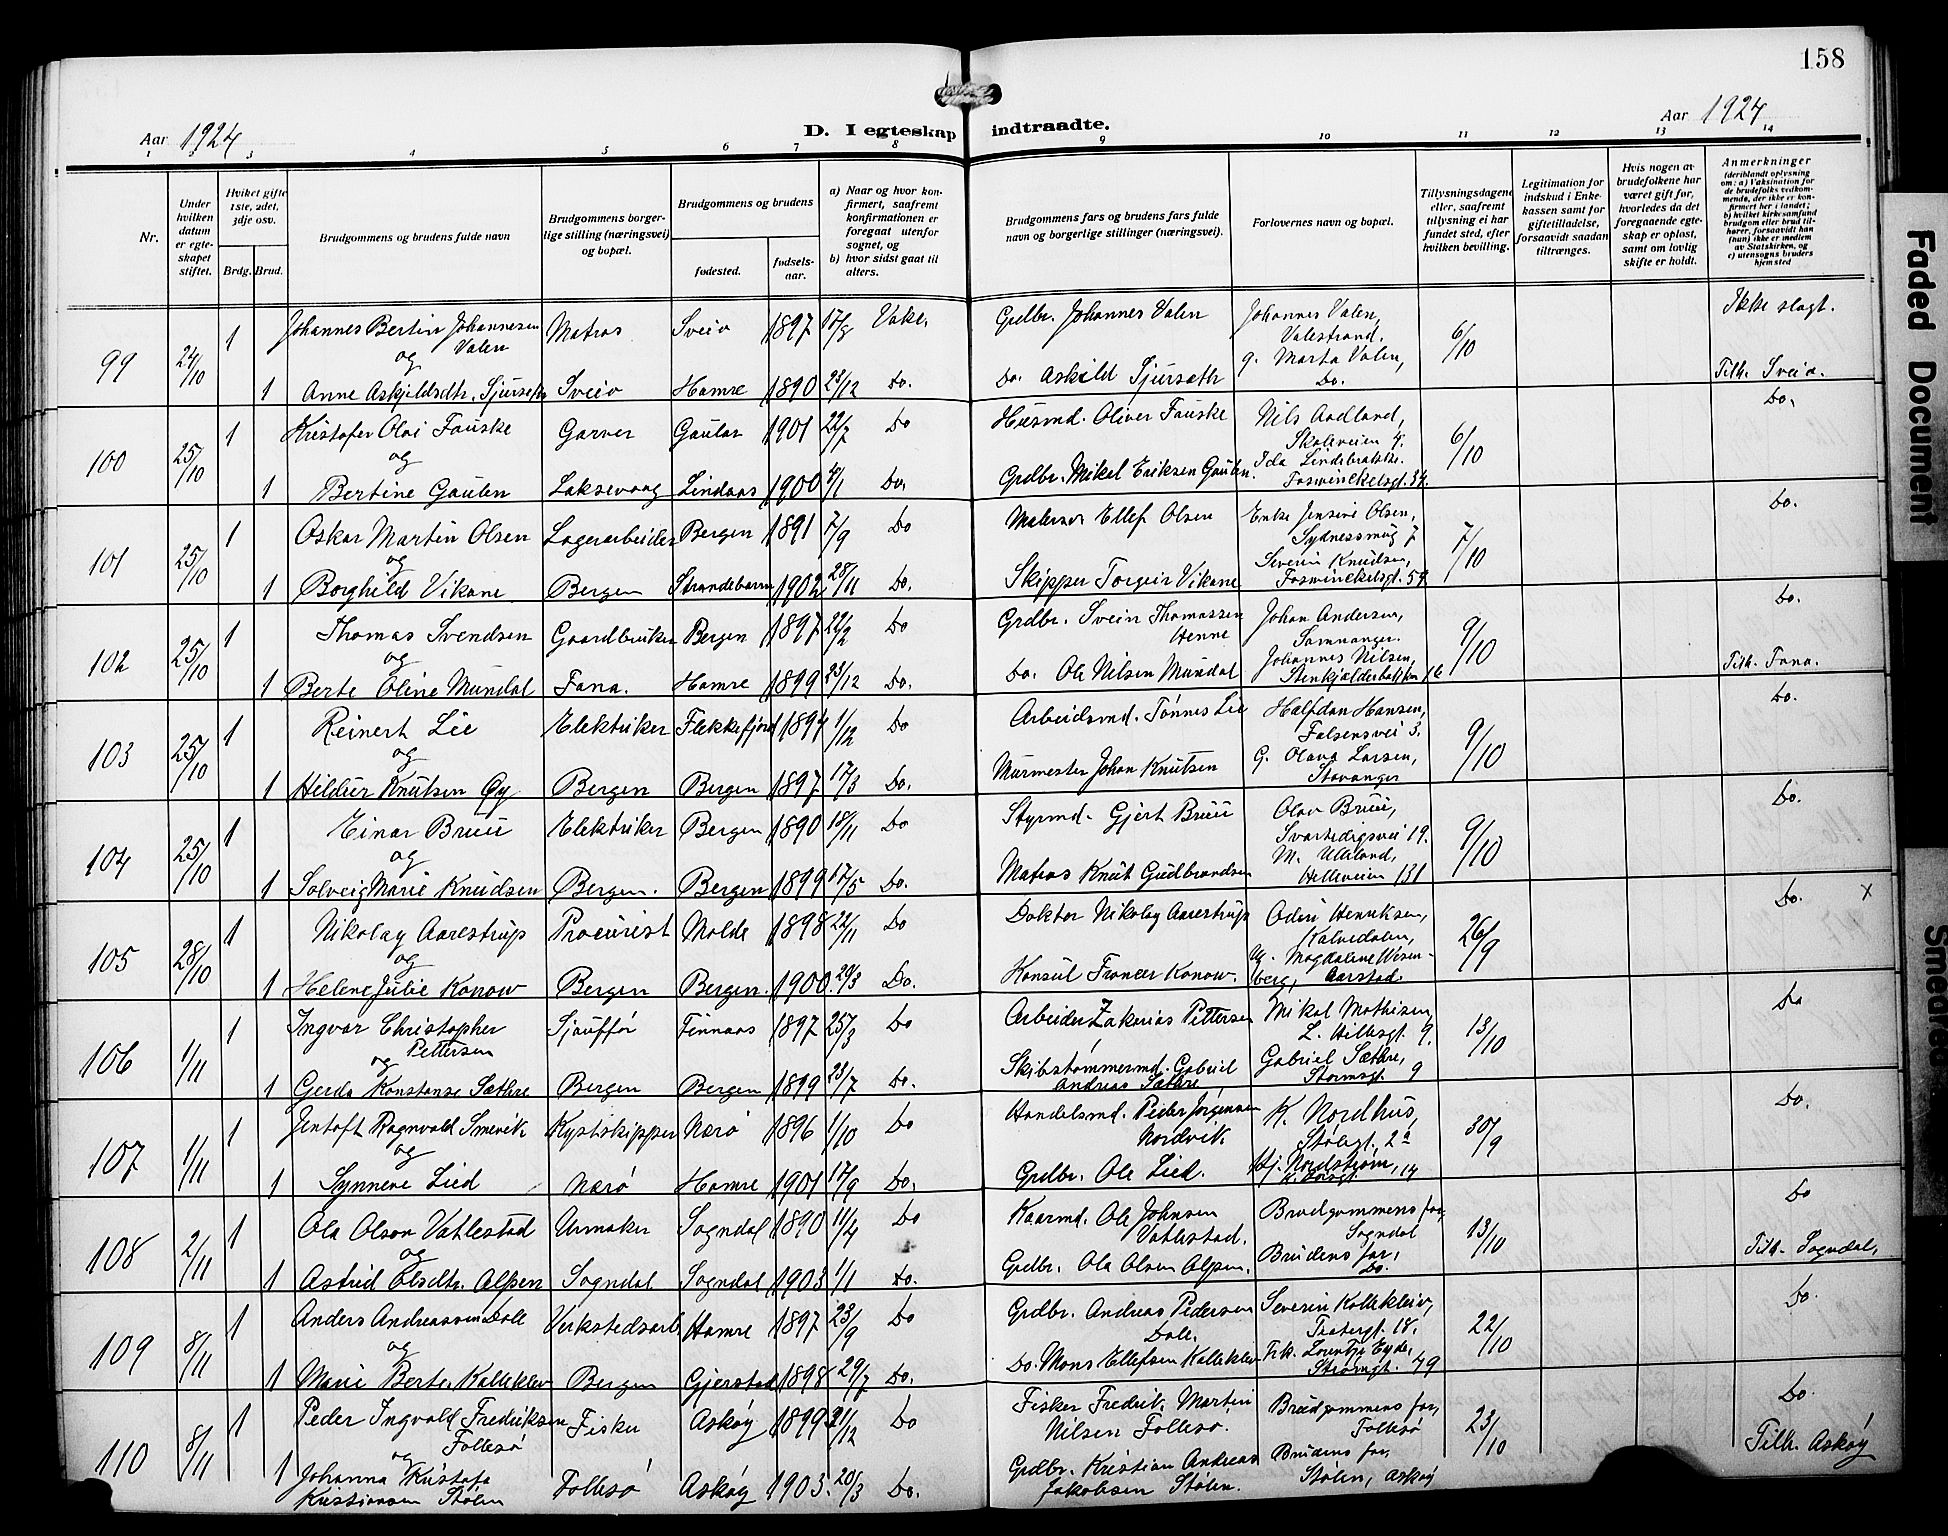 158
Aar 1924
D. I egteskap indtraadte.
Aar 1924
1 2 3 4 5 6 7 8 9 10 11 12 13 14
Nr.
Under hvilken datum er egteskapet stiftet.
Hvilket gifte 1ste, 2det, 3dje osv.
Brdg. Brud.
Brudgommens og brudens fulde navn
Brudgommens borgerlige stilling (næringsvei) og bopæl.
Brudgommens og brudens
fødested.
fødselsaar.
a) Naar og hvor konfirmert, saafremt konfirmationen er foregaat utenfor sognet, og
b) hvor sidst gaat til alters.
Brudgommens fars og brudens fars fulde navn og borgerlige stillinger (næringsvei).
Forlovernes navn og bopæl.
Tillysningsdagene eller, saafremt tillysning ei har fundet sted, efter hvilken bevilling.
Legitimation for indskud i Enkekassen samt for giftetilladelse, forsaavidt saadan tiltrænges.
Hvis nogen av brudefolkene har været gift før, hvorledes da det foregaaende egteskap er opløst, samt om lovlig skifte er holdt.
Anmerkninger
(deriblandt oplysning om: a) Vaksination for de brudefolks vedkommende, der ikke er konfirmert her i landet; b) hvilket kirkesamfund brudgom eller brud tilhører, forsaavidt han (hun) ikke er medlem av Statskirken, og c) utensogns bruders hjemsted
99 24/10 1 Johannes Bertin Johannesen Valen Matros Sveio 1897 Grdbr. Johannes Valen Johannes Valen, Valestrand. 6/10 Ikke slægt.
og g. Marta Valen,
1 Anne Askjildsdtr. Sveio Hamre 1890 23/12 Do. Do. Askild Do. Tilh. Sveio.
100 25/10 1 Kristofer Olai Fauske Garver Gaular 1901 22/7 Do Husmd. Oliver Fauske Nils Aadland, Skoleveien 4. 6/10 Do.
og Ida
1 Bertine Gaulen Laksevaag Lindaas 1900 4/1 Do. Grdbr. Mikel Eriksen Gaulen.
101 25/10 1 Oskar Martin Olsen Lagerarbeider Bergen 1891 7/9 Do Matros Ellef Olsen Enke Jensine Olsen, Sydnessmug 7 7/10 Do.
og Severin Knudsen,
1 Borghild Vikane Bergen Strandebarm 1902 28/11 Do. Skipper Torgeir Vikane Foswinckelsgt. 54
102 25/10 1 Thomas Svendsen Gaardbruker Bergen 1897 22/2 Do Grdbr. Svein Thomassen Henne Johan Andersen, Samnanger. 9/10 Do.
og Johannes Nilsen,
1 Berte Oline Mundal Fana. Hamre 1899 23/12 Do. Do. Ole Nilsen Mundal Stenkjælderbakken 16 Tilh. Fana.
103 25/10 1 Reinert Lie Elektriker Flekkefjord 1894 1/12 Do Arbeidsmd. Tønnes Lie Halfdan Hansen, Falsensvei 3. 9/10 Do.
og G. Olava Larsen,
1 Hildur Knutsen Øy Bergen Bergen 1897 17/3 Do. Murmester Johan Knutsen Stavanger
104 25/10 1 Einar Bruu Elektriker Bergen 1890 18/11 Do Styrmd. Gjert Bruu Olav Bruu, Svartedigsvei 19. 9/10 Do.
og M. Ulland,
1 Solveig Marie Knudsen Bergen. Bergen 1899 17/5 Do. Matros Knut Gudbrandsen Helleveien 131
105 28/10 1 Nikolay Aarestrup Procurist Molde 1898 22/11 Do Doktor Nikolay Aarestrup Odin Henriksen, Kalvedalen, 26/9 Do. x
og Magdalene Wesenberg,
1 Helene Julie Konow Bergen Bergen. 1900. 29/3 Do. Konsul Francer Konow. Aarstad.
106 1/11 1 Ingvar Christopher Pettersen Sjauffør Finnaas 1897 25/3 Do Arbeider Zakarias Pettersen Mikal Mathisen, L. Hillesgt. 9. 18/10 Do
og Gabriel Sæthre,
1 Gerda Konstanse Sæthre Bergen Bergen 1899 23/7 Do. Skibstømmermd. Gabriel Andreas Sæthre Stormsgt. 9
107 1/11 1 Jentoft Ragnvald Smevik Kystskipper Nærø 1896 1/10 Do Handelsmd. Peder Jørgensen Nordvik K. Nordhus, Stølegt. 2a 30/9 Do.
og Hj. Nordstrøm,
1 Synneve Lied Nærø Hamre 1901 17/9 Do. Grdbr. Ole Lied. 14
108 2/11 1 Ola Olson Vatlestad Urmaker Sogndal 1890 11/4 Do Kaarmd. Ole Johnsen Vatlestad. Brudgommens far, Sogndal 13/10 Do
og Brudens far,
1 Astrid Olsdtr. Alpen Sogndal Sogndal 1903 1/1 Do. Grdbr. Ola Olsen Alpen. Do. Tilh. Sogndal.
109 8/11 1 Anders Andreassen Dale Verkstedsarb. Hamre 1897 23/9 Do Grdbr. Andreas Pedersen Dale. Severin Kalleklev, Teatergt. 18. 22/10 Do.
og Frk. Eyde,
1 Marie Berte Kalleklev Bergen Gjerstad 1898 29/7 Do. Do. Mons Ellefsen Kalleklev Strømgt. 49
110 8/11 1 Peder Ingvald Fredriksen Follesø Fisker Askøy 1899 21/12 Do Fisker Fredrik Martin Nilsen Follesø. Brudgommens far, Follesø 23/10 Do.
og Brudens far,
1 Johanna Kristofa Kristiansen Stølen Follesø Askøy 1903. 20/3 Do. Grdbr. Kristian Andreas Jakobsen Stølen. Stølen, Askøy Tilh. Askøy
Faded Document
Smeared